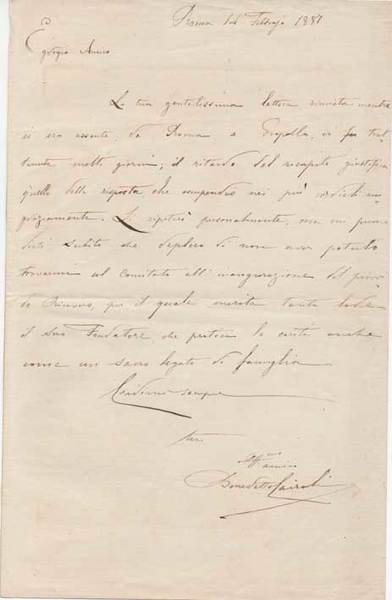 Roma 14 Febbrajo 1887
Egregio Amico
La tua gentilissima lettera rinviata mentre
io ero assente da Roma a Gropello, fu
molti giorni; il ritardo del recapito giustifica
quello della risposta che compendio nei più cordiali
ringraziamenti. Li ripeterò personalmente, ma mi preme
dirti subito che deploro di non aver potuto
trovarmi al Comitato all'inaugurazione del
Ricovero, per il quale merita tanta lode
il suo Fondatore che pratica la carità anche
come un sacro legato di famiglia
Credimi sempre
tuo
Aff.mo amico
Benedetto Cairoli